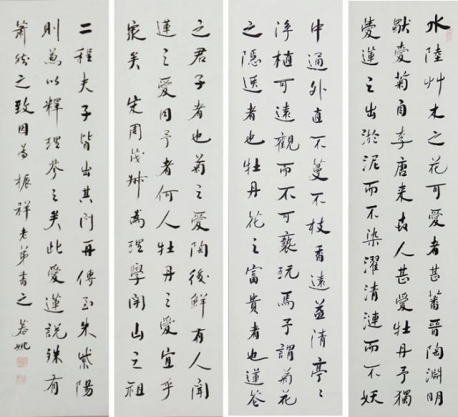 水陸艸木之花可愛者甚蕃晉陶淵明
獨愛菊自李唐来世人甚愛牡丹予獨
愛蓮之出淤泥而不染濯清漣而不妖
中通外直不蔓不枝香遠益清亭〻
淨植可遠觀而不可褻玩焉予謂菊花
之隱逸者也牡丹花之富貴者也蓮花
之君子者也菊之愛陶後鮮有人聞
蓮之愛同予者何人牡丹之愛宜乎
衆矣 宋周茂叔為理學開山之祖
二程夫子皆出其門再傳至朱紫陽
則兼以釋理參之矣此愛蓮說殊有
蕭然之致因為振祥老弟書之